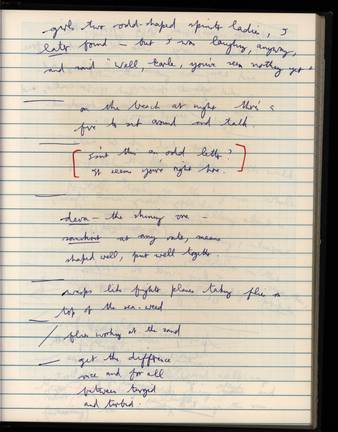 girls two odd-shaped spirits ladies, I
later found - but I was laughing, anyway,
and said "Well, , you've seen nothing yet"
on the beach at night there's a
fire to sit around and talk.
isn't this an odd letter?
It seems you're right here.
deva - the shining one -
at any rate, means
shaped well, put well together.
wasps like fighter planes taking flies on
top of the sea-weed
flies working at the sand
get the difference
once and for all
between turgid
and turbid.